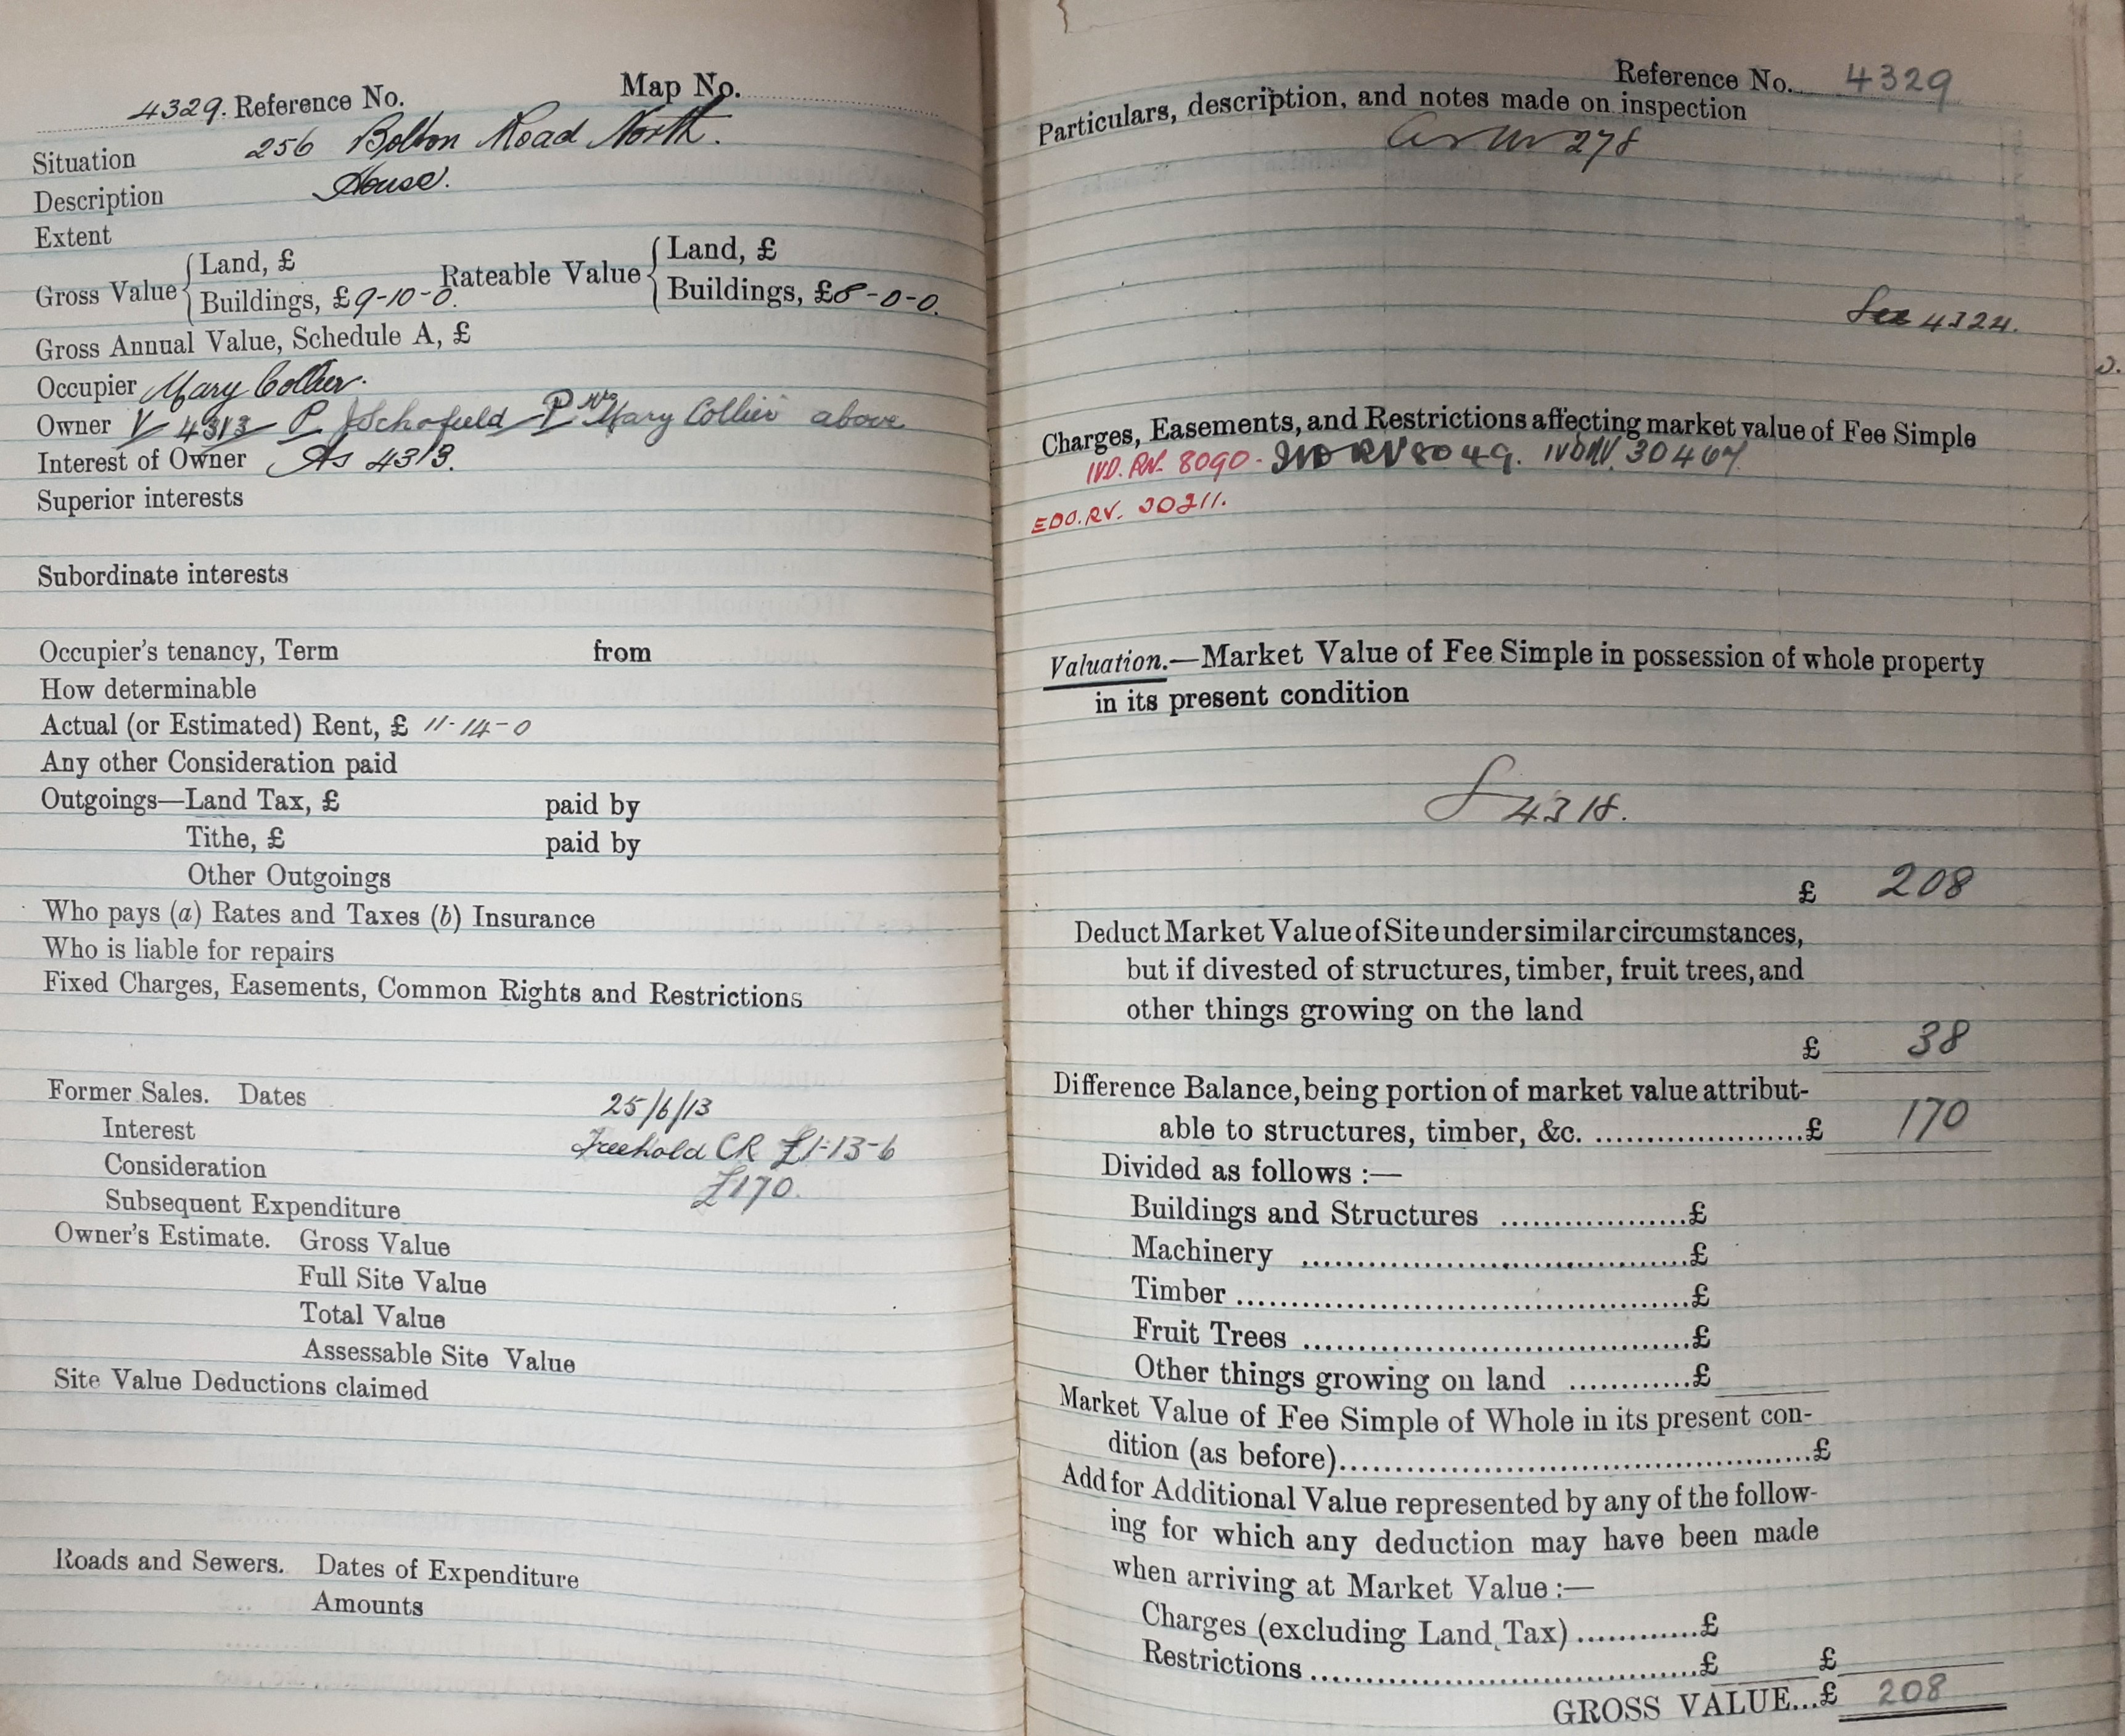 4329. Reference No. Map No.
Situation 256 Bolton Road North.
Description House.
Extent
Gross Value { Land, £ Rateable Value { Land, £
Buildings, £9-10-0. Buildings, £8-0-0.
Gross Annual Value, Schedule A, £
Occupier Mary Collier.
Owner V 4313 P J Schofield P Mrs Mary Collier above
Interest of Owner As 4313.
Superior interests
Subordinate interests
Occupier's tenancy, Term from
How determinable
Actual (or Estimated) Rent, £ 11-14-0
Any other Consideration paid
Outgoings—Land Tax, £ paid by
Tithe, £ paid by
Other Outgoings
Who pays (a) Rates and Taxes (b) Insurance
Who is liable for repairs
Fixed Charges, Easements, Common Rights and Restrictions
Former Sales. Dates 25/6/13
Interest Freehold CR £1-13-6
Consideration £170.
Subsequent Expenditure
Owner's Estimate. Gross Value
Full Site Value
Total Value
Assessable Site Value
Site Value Deductions claimed
Roads and Sewers. Dates of Expenditure
Amounts
Reference No. 4329
Particulars, description, and notes made on inspection
278
See 4324.
Charges, Easements, and Restrictions affecting market value of Fee Simple
IVD. RV. 8090. IVD RV 8049. IVD RV. 30467
EDO. RV. 30211.
Valuation.—Market Value of Fee Simple in possession of whole property
in its present condition
S 4318.
£ 208
Deduct Market Value of Site under similar circumstances,
but if divested of structures, timber, fruit trees, and
other things growing on the land
£ 38
Difference Balance, being portion of market value attribut-
able to structures, timber, &c. £ 170
Divided as follows :—
Buildings and Structures £
Machinery £
Timber £
Fruit Trees £
Other things growing on land £
Market Value of Fee Simple of Whole in its present con-
dition (as before) £
Add for Additional Value represented by any of the follow-
ing for which any deduction may have been made
when arriving at Market Value :—
Charges (excluding Land Tax) £
Restrictions £ £
GROSS VALUE...£ 208